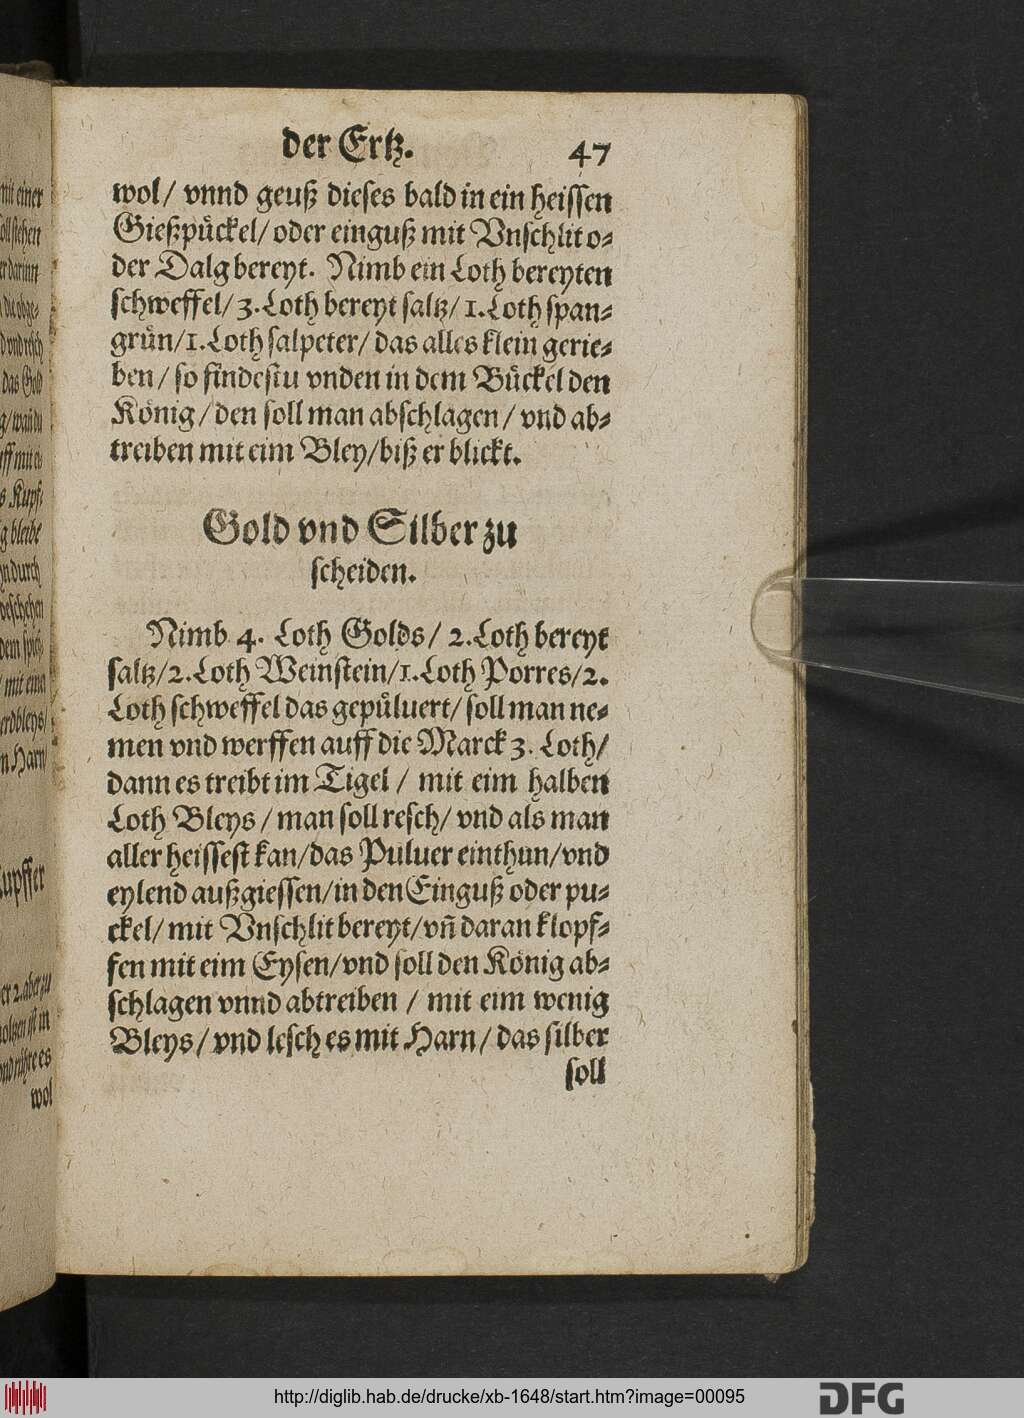 der Ertz. 47
wol/ vnnd geuß dieses bald in ein heissen
Gießpuͤckel/ oder einguß mit Vnschlit o-
der Dalg bereyt. Nimb ein Loth bereyten
schweffel/ 3. Loth bereyt saltz/ 1. Loth span-
gruͤn/ 1. Loth salpeter/ das alles klein gerie-
ben/ so findestu vnden in dem Buͤckel den
Koͤnig/ den soll man abschlagen/ vnd ab-
treiben mit eim Bley/ biß er blickt.
Gold vnd Silber zu
scheiden.
Nimb 4. Loth Golds/ 2. Loth bereyt
saltz/ 2. Loth Weinstein/ 1. Loth Porres/ 2.
Loth schweffel das gepuͤluert/ soll man ne-
men vnd werffen auff die Marck 3. Loth/
dann es treibt im Tigel/ mit eim halben
Loth Bleys/ man soll resch/ vnd als man
aller heissest kan/ das Puluer einthun/ vnd
eylend außgiessen/ in den Einguß oder pu-
ckel/ mit Vnschlit bereyt/ vn̄ daran klopf-
fen mit eim Eysen/ vnd soll den Koͤnig ab-
schlagen vnnd abtreiben/ mit eim wenig
Bleys/ vnd lesch es mit Harn/ das silber
soll
mit einer
das Gold
s Kupf-
g bleibe
n durch
geschehen
mit eima
n Harn
Kupffer
wol
http://diglib.hab.de/drucke/xb-1648/start.htm?image=00095
DFG